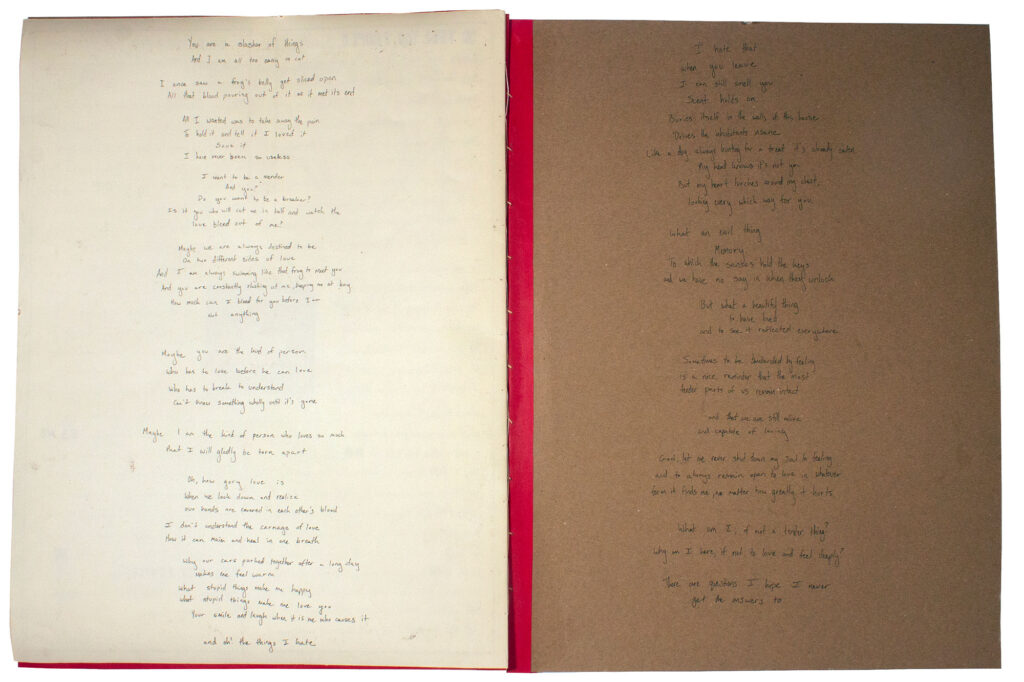 You are a slasher of things
And I am all too easy to cut
I once saw a frog's belly get sliced open
All that blood pouring out of it as it met its end
All I wanted was to take away the pain
To hold it and tell it I loved it
Save it
I have never been so useless
I want to be a mender
And you?
Do you want to be a breaker?
Is it you who will cut me in half and watch the
love bleed out of me?
Maybe we are always destined to be
On two different sides of love
And I am always swimming like that frog to meet you
And you are constantly slashing at me, keeping me at bay
How much can I bleed for you before I am
not anything
Maybe you are the kind of person
Who has to lose before he can love
Who has to break to understand
Can't know something wholly until it's gone
Maybe I am the kind of person who loves so much
that I will gladly be torn apart
Oh, how gory love is
When we look down and realize
our hands are covered in each other's blood
I don't understand the carnage of love
How it can maim and heal in one breath
Why our cars parked together after a long day
makes me feel warm
What stupid things make me happy
what stupid things make me love you
Your smile and laugh when it is me who causes it
and oh! the things I hate
I hate that
when you leave
I can still smell you
Scent holds on
Buries itself in the walls of this house
Drives the inhabitants insane
Like a dog always hunting for a treat it's already eaten
My head knows it's not you
But my heart lurches around my chest,
looking every which way for you
What an evil thing
Memory
To which the senses hold the keys
and we have no say in when they unlock
But what a beautiful thing
to have loved
and to see it reflected everywhere
Sometimes to be by feeling
is a nice reminder that the most
tender parts of us remain intact
and that we are still alive
and capable of loving
God, let me never shut down my soul to feeling
and to always remain open to love in whatever
form it finds me, no matter how greatly it hurts
What am I, if not a tender thing?
Why am I here, if not to love and feel deeply?
These are questions I hope I never
get the answers to